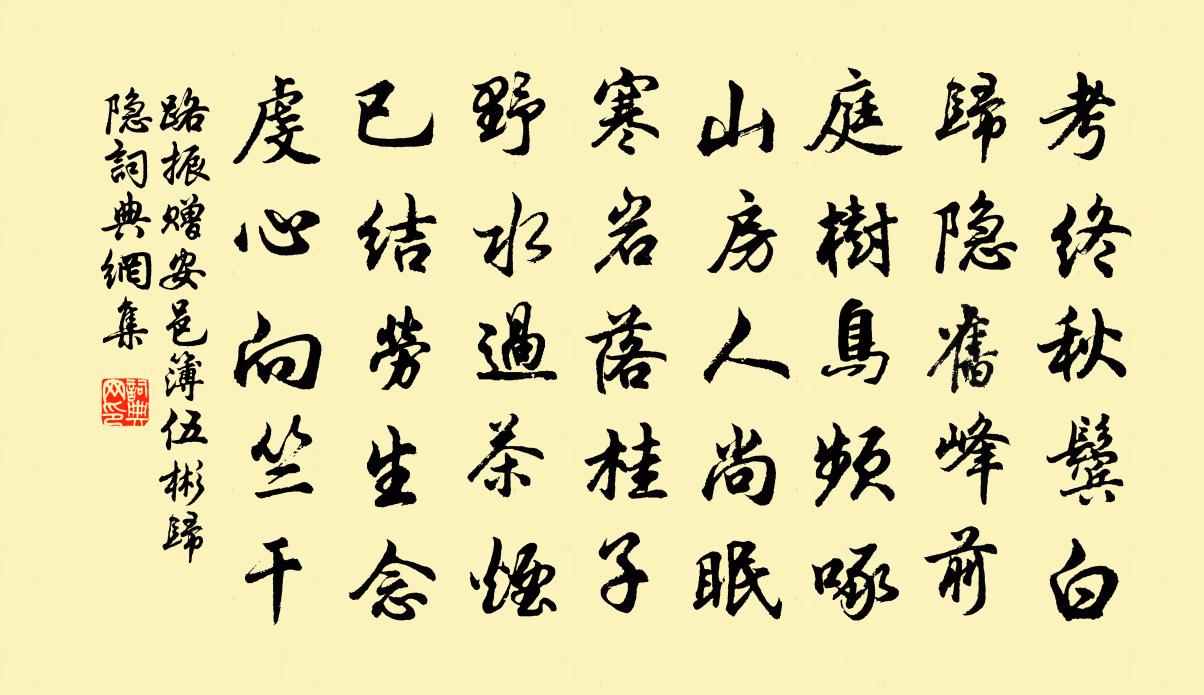 考終秋鬓白
歸隐舊峰前
庭樹鳥頻啄
山房人尚眠
寒岩落桂子
野水過茶煙
已结勞生念
虔心向竺干
路振赠安邑簿伍彬歸
隐詞典網集
詞典网印